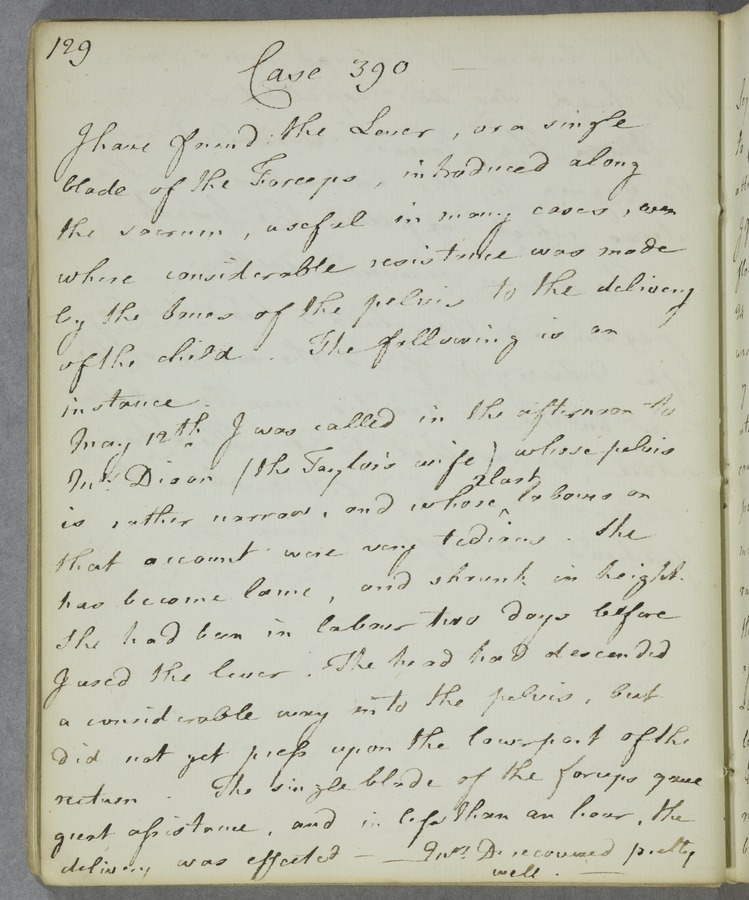 129
Case 390 —
I have found the Lever, or a single
blade of the Forceps, introduced along
the sacrum, useful in many cases, even
where considerable resistance was made
by the bones of the pelvis to the delivery
of the child. The following is an
instance.
May 12th I was called in the afternoon to
Mrs. Dixon (the Taylor's wife) whose pelvis
is rather narrow, and whose 2 last labours on
that account were very tedious. She
has become lame, and shrunk in height.
She had been in labour two days before
I used the lever. The head had descended
a considerable way into the pelvis, but
did not yet press upon the lower part of the
rectum. The single blade of the forceps gave
great assistance, and in less than an hour, the
delivery was effected — Mrs. D. recovered pretty
well. —